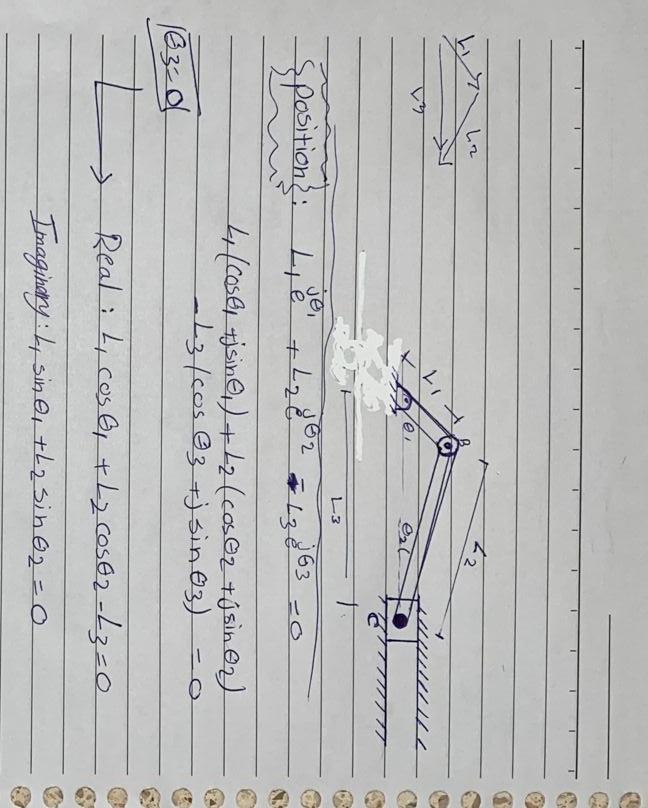 L1
L2
L3
L1
B
L2
θ1
θ2
C
L3
position: L1e^jθ1 + L2e^jθ2 - L3e^jθ3 = 0
L1(cosθ1 + jsinθ1) + L2(cosθ2 + jsinθ2)
- L3(cosθ3 + jsinθ3) = 0
θ3 = 0
Real: L1 cosθ1 + L2 cosθ2 - L3 = 0
Imaginary: L1 sinθ1 + L2 sinθ2 = 0